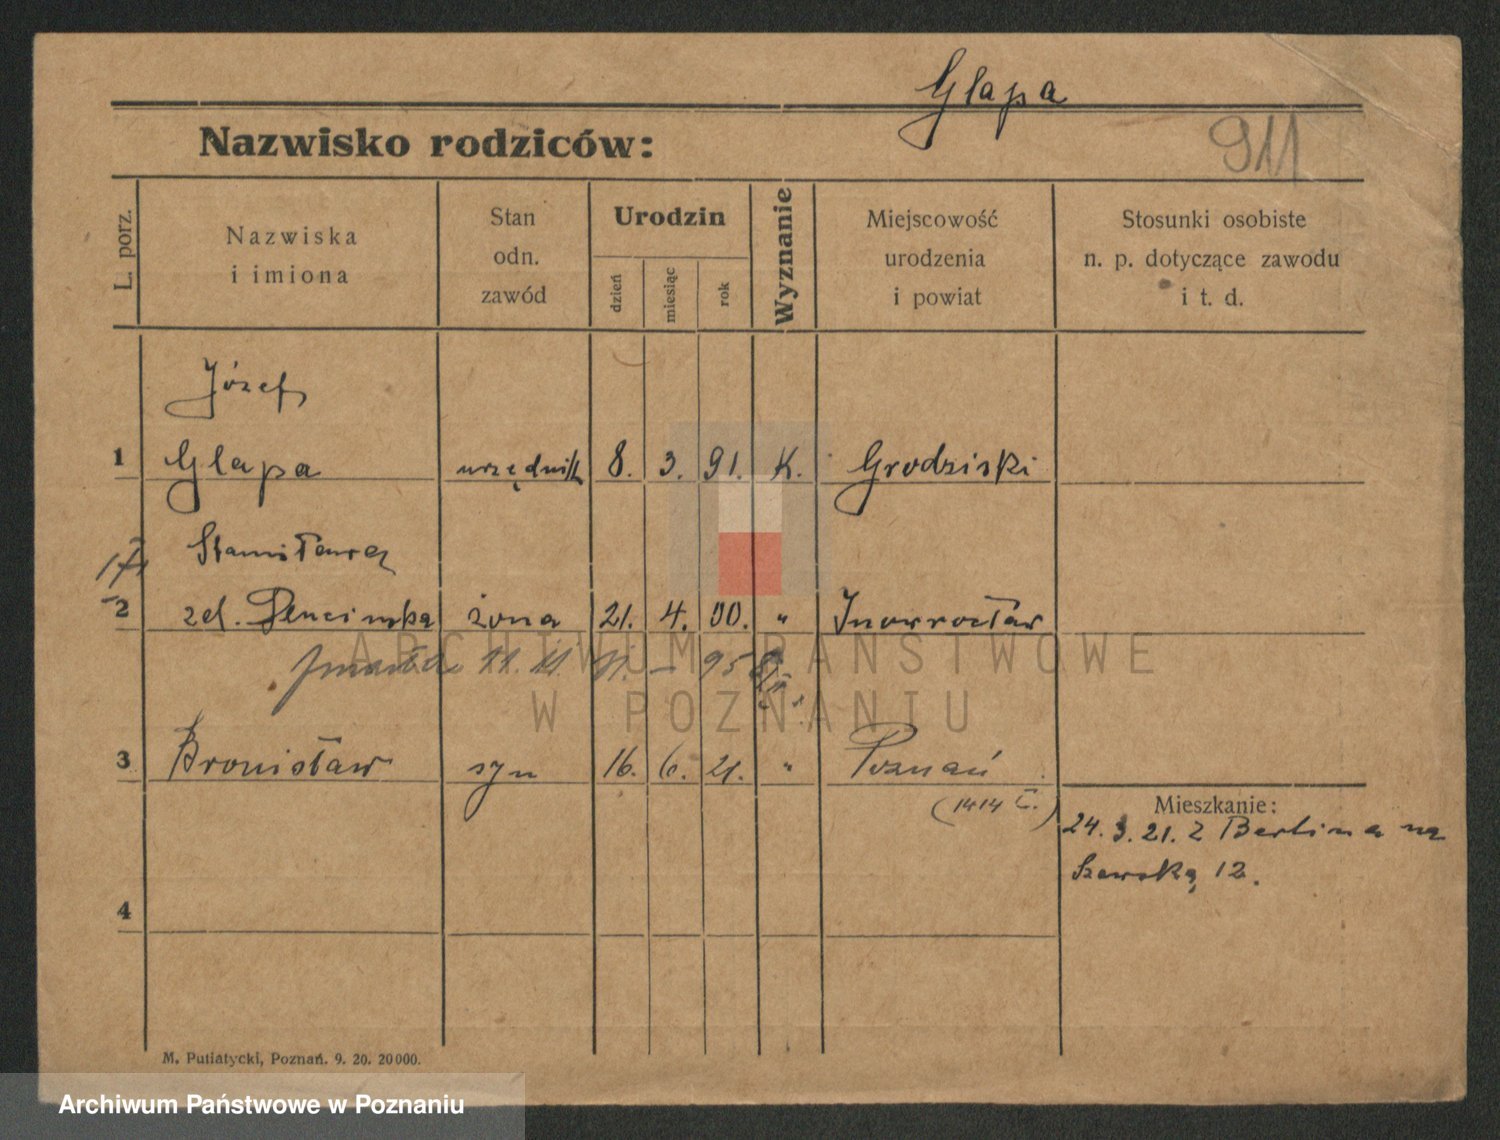 Glapa
Nazwisko rodziców:
911
L. porz.
Nazwiska
i imiona
Stan
odn.
zawód
Urodzin
dzień
miesiąc
rok
Wyznanie
Miejscowość
urodzenia
i powiat
Stosunki osobiste
n. p. dotyczące zawodu
i t. d.
Józef
1 Glapa urzędnik 8. 3. 91. K. Grodziski
Stanisława
2 zd. żona 21. 4. 00. " Inowrocław
zmarła 11. 11.
3 Bronisław syn 16. 6. 21. " Poznań
(1414
Mieszkanie:
24. 3. 21. z Berlina na
Szewską 12.
4
M. Putiatycki, Poznań. 9. 20. 20000.
ARCHIWUM PAŃSTWOWE
W POZNANIU
Archiwum Państwowe w Poznaniu